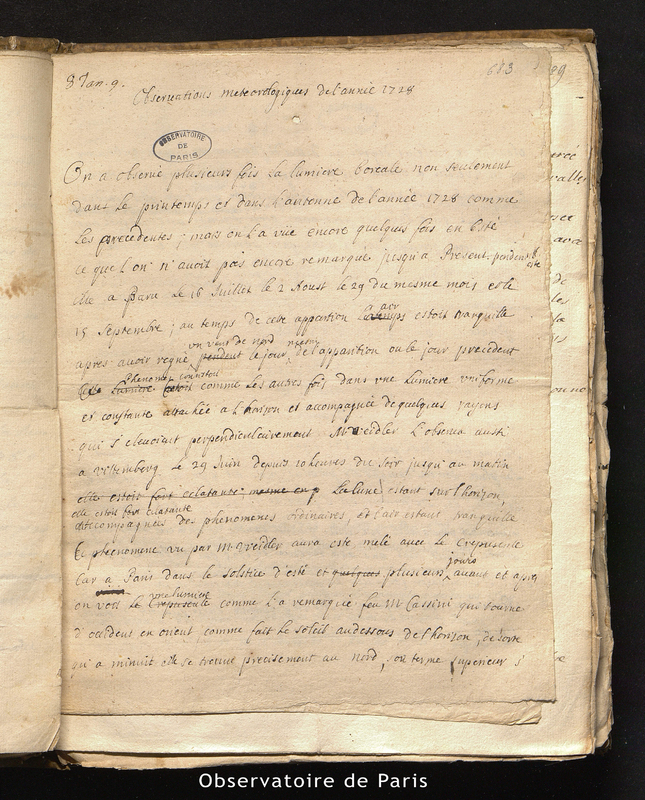 8 Jan. 9.
683
89
Observations meteorologiques de l'année 1728
OBSERVATOIRE
DE
PARIS
On a observé plusieurs fois la lumiere boreale non seulement
dans le printemps et dans l'automne de l'année 1728 comme
les precedentes; mais on l'a vüe encore quelques fois en Esté
ce que l'on n'avoit pas encore remarqué jusqu'a Present.
elle a Paru le 16 Juillet le 2 Aoust le 29 du mesme mois et le
15 Septembre; au temps de cette apparition l'air estoit tranquille
un vent de nord
apres avoir regné le jour de l'apparition ou le jour precedent
Phenomene
lumiere estoit comme les autres fois dans une lumiere uniforme
et constante attachée a l'horison et accompagnée de quelques rayons
qui s'elevoient perpendiculairement Mr Veidler l'observa aussi
a Vittemberg le 29 Juin depuis 10 heures du soir jusqu'au matin
elle estoit fort eclatante mesme la lune estant sur l'horizon,
elle estoit fort eclatante
accompagnée des phenomenes ordinaires, et l'air estant tranquille
le phenomene vu par Mr Veidler aura esté melé avec le Crepuscule
jours
Car a Paris dans le solstice d'esté et quelques plusieurs avant et apres
une lumiere
on voit le Crepuscule comme l'a remarqué feu M Cassini qui tourne
d'occident en orient comme fait le soleil au dessous de l'horizon, de sorte
qu'a minuit elle se trouve precisement au nord, son terme superieur s'
Observatoire de Paris